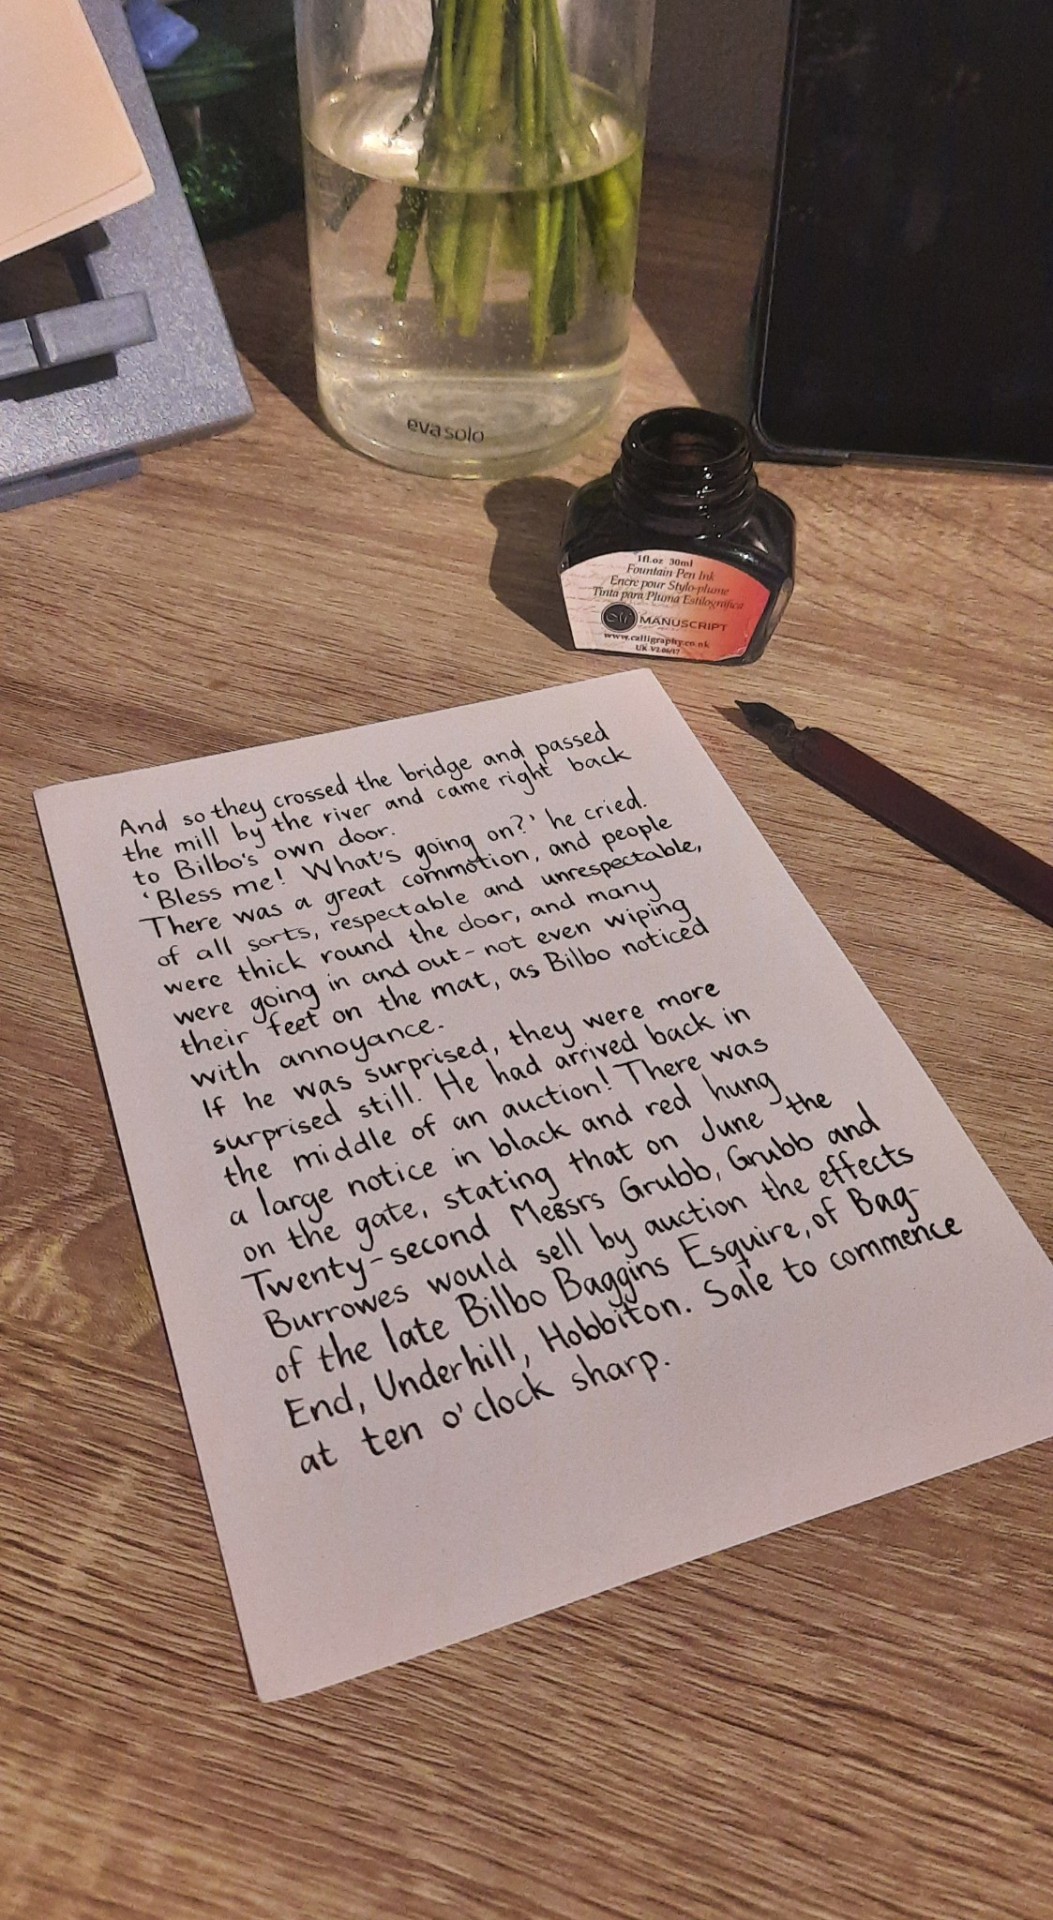 evasolo
1fl.oz 30ml
Fountain Pen Ink
Encre pour Stylo-plume
Tinta para Pluma Estilográfica
MANUSCRIPT
www.calligraphy.co.uk
UK V2.06/17
And so they crossed the bridge and passed
the mill by the river and came right back
to Bilbo's own door.
'Bless me! What's going on?' he cried.
There was a great commotion, and people
of all sorts, respectable and unrespectable,
were thick round the door, and many
were going in and out - not even wiping
their feet on the mat, as Bilbo noticed
with annoyance.
If he was surprised, they were more
surprised still. He had arrived back in
the middle of an auction! There was
a large notice in black and red hung
on the gate, stating that on June the
Twenty-second Messrs Grubb, Grubb and
Burrowes would sell by auction the effects
of the late Bilbo Baggins Esquire, of Bag-
End, Underhill, Hobbiton. Sale to commence
at ten o'clock sharp.